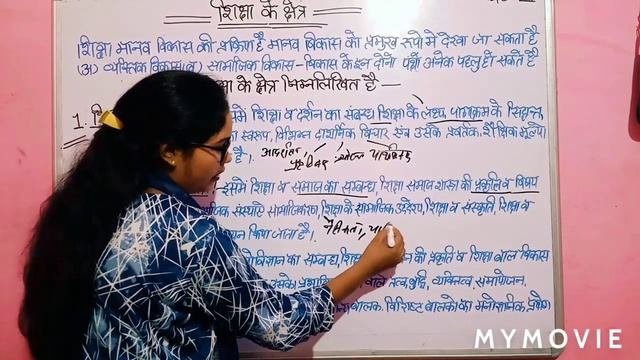 शिक्षा के क्षेत्र
शिक्षा मानव विकास की प्रक्रिया है मानव विकास को प्रमुख रूपो मे देखा जा सकता है
(अ) व्यक्तिक विकास (ब) सामाजिक विकास - विकास के इन दोनो पक्षों अनेक पहलू हो सकते है
शिक्षा के क्षेत्र निम्नलिखित है —
1. इसमे शिक्षा व दर्शन का सम्बन्ध शिक्षा के लक्ष्य, पाठ्यक्रम के सिद्धान्त
स्वरूप, विभिन्न दार्शनिक विचार एवं उसके प्रवर्तक, शैक्षिक मूल्यो
है।
:- इसमें शिक्षा व समाज का सम्बन्ध, शिक्षा समाज शास्त्र की प्रकृति व विषय
संस्थाए सामाजिकरण, शिक्षा के सामाजिक उद्देश्य, शिक्षा व संस्कृति, शिक्षा व
किया जाता है। नैतिकता,
का सम्बन्ध, की प्रकृति व शिक्षा बाल विकास
उसको बुद्धि, व्यक्तित्व, समायोजन,
बालक, विशिष्ट बालको का
MYMOVIE